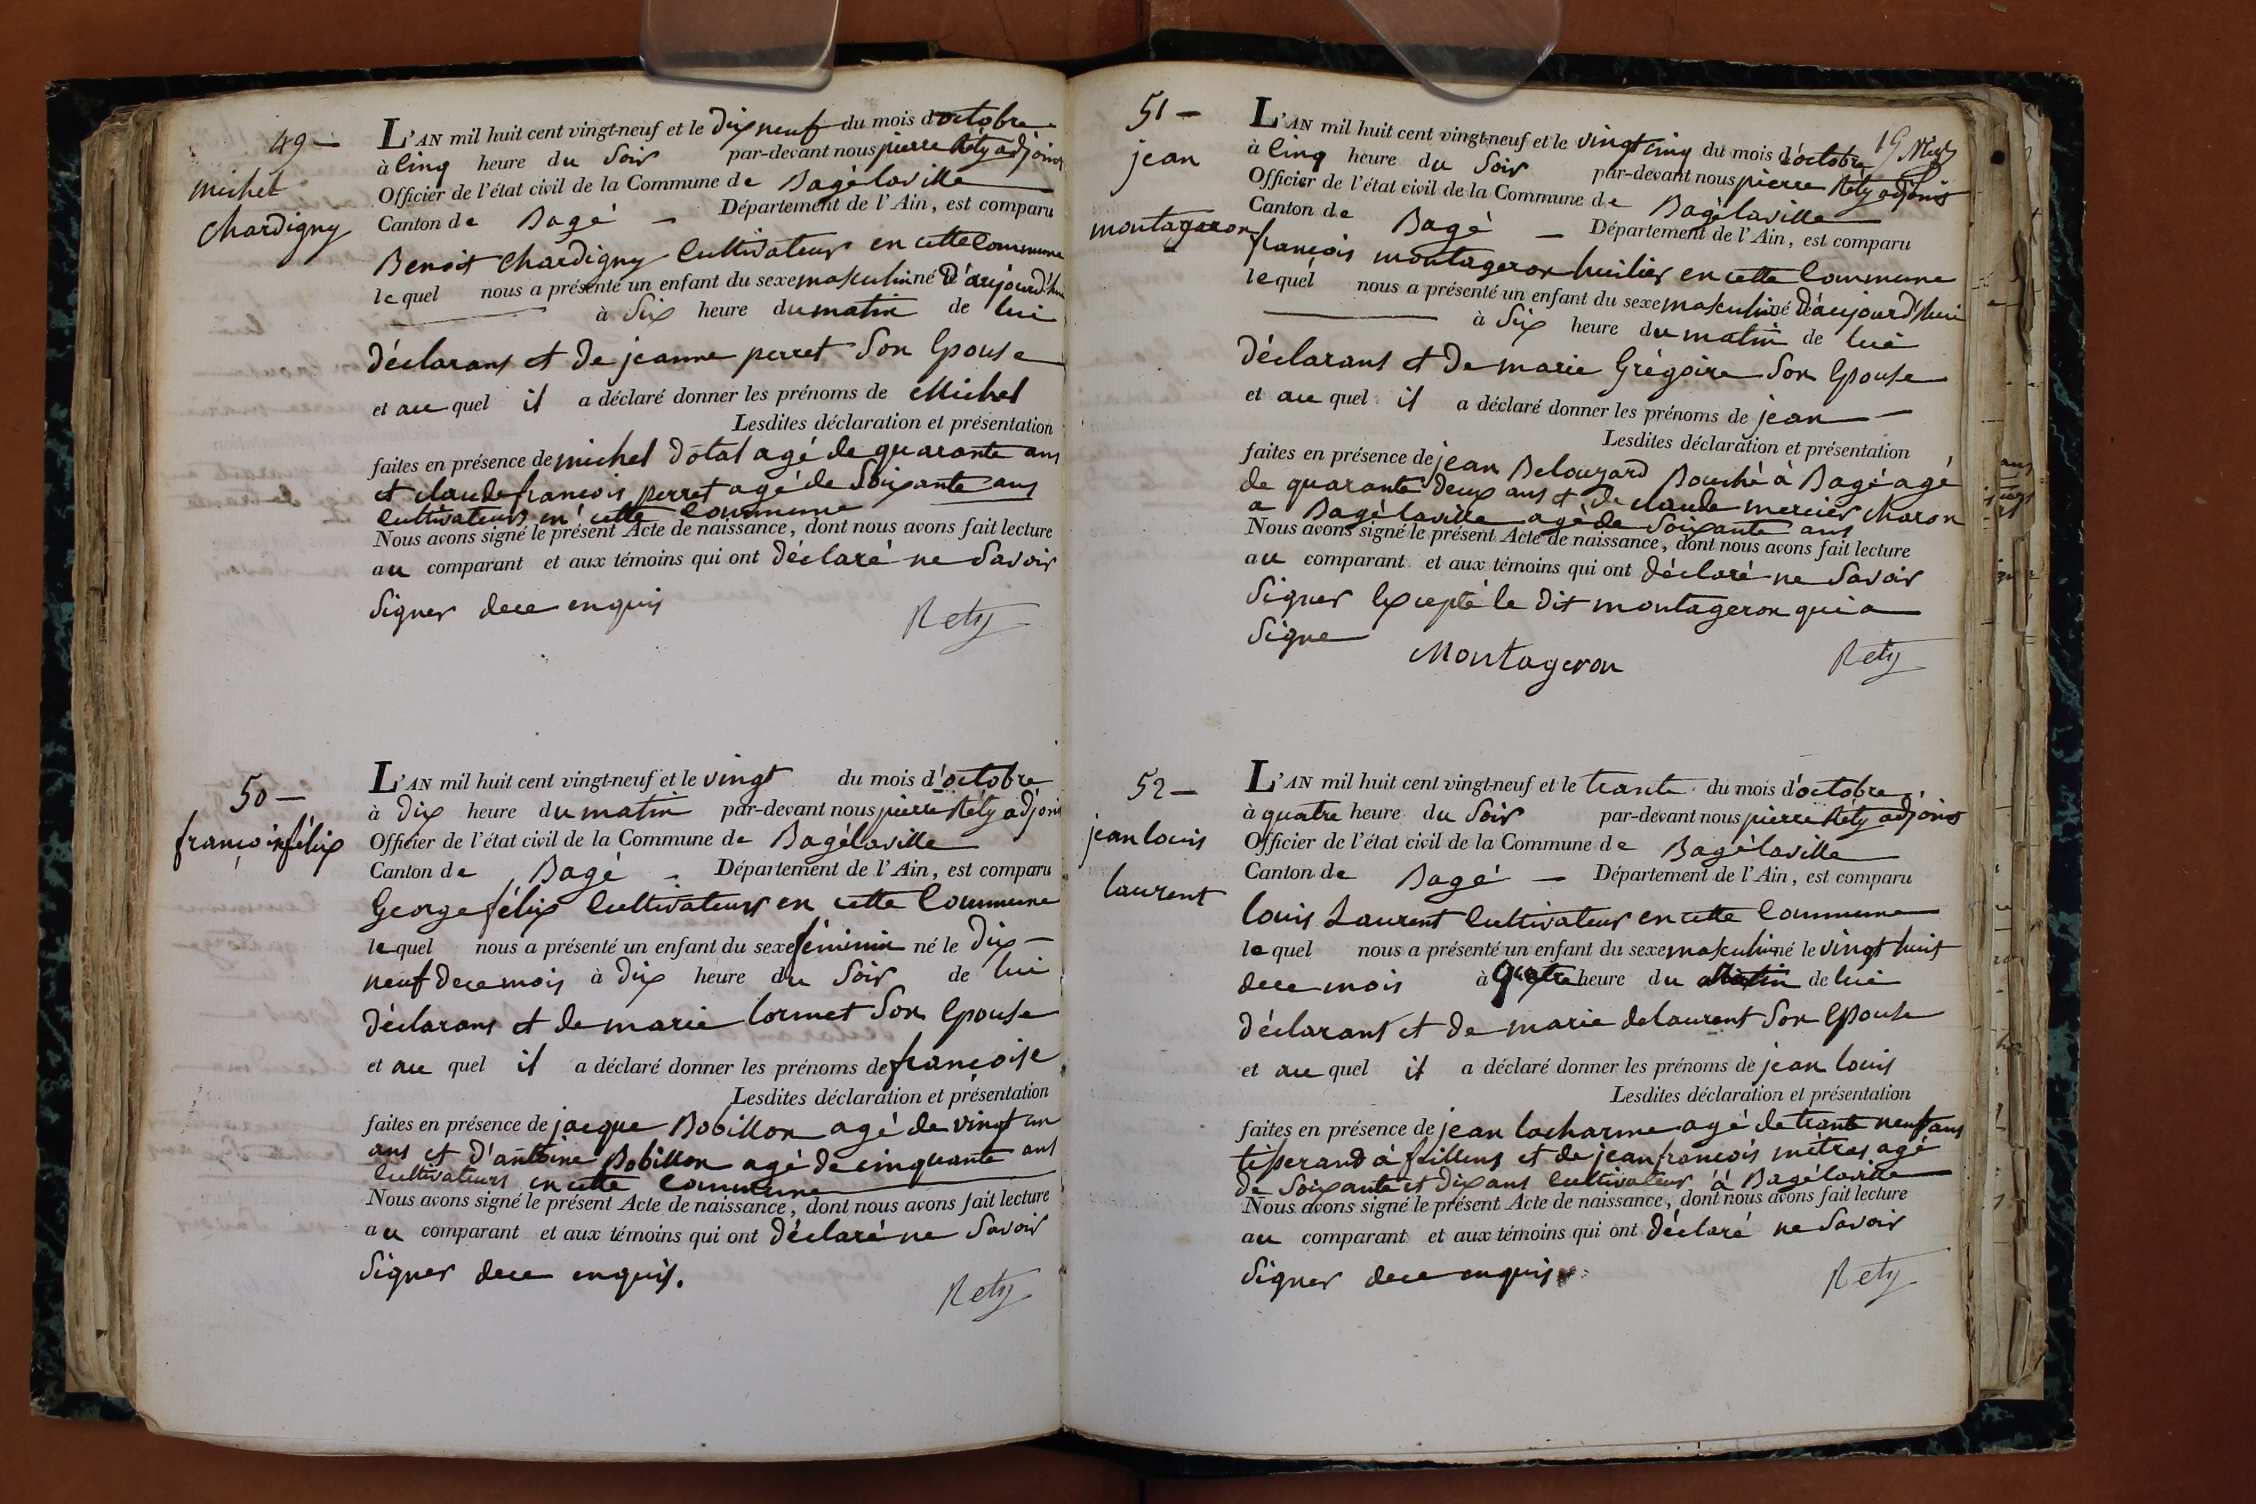 49 —
michel
chardigny
L'AN mil huit cent vingt-neuf et le dix neuf du mois d'octobre
à Cinq heure du Soir par-devant nous pierre Réty adjoint
Officier de l'état civil de la Commune de Bagélaville
Canton de Bagé — Département de l'Ain, est comparu
Benoit Chardigny Cultivateur en cette Commune
lequel nous a présenté un enfant du sexe masculin né d'aujourd'hui
à Six heure du matin de lui
déclarans et de jeanne perret Son Epouse
et au quel il a déclaré donner les prénoms de Michel
Lesdites déclaration et présentation
faites en présence de michel dotal agé de quarante ans
et claude françois perret agé de Soixante ans
Cultivateurs en cette Commune
Nous avons signé le présent Acte de naissance, dont nous avons fait lecture
au comparant et aux témoins qui ont déclaré ne Savoir
Signer dece enquis
Rety
50 —
françoise félix
L'AN mil huit cent vingt-neuf et le vingt du mois d'octobre
à dix heure du matin par-devant nous pierre Réty adjoint
Officier de l'état civil de la Commune de Bagélaville
Canton de Bagé — Département de l'Ain, est comparu
George félix Cultivateur en cette Commune
lequel nous a présenté un enfant du sexe féminin né le dix —
neuf dece mois à dix heure du Soir de lui
déclarans et de marie Cormet Son Epouse
et au quel il a déclaré donner les prénoms de françoise
Lesdites déclaration et présentation
faites en présence de jacque Bobillon agé de vingt un
ans et d'antoine Bobillon agé de cinquante ans
Cultivateurs en cette Commune
Nous avons signé le présent Acte de naissance, dont nous avons fait lecture
au comparant et aux témoins qui ont déclaré ne Savoir
Signer dece enquis.
Rety
51 —
jean
montageron
L'AN mil huit cent vingt-neuf et le vingt cinq du mois d'octobre
à Cinq heure du Soir par-devant nous pierre Réty adjoint
Officier de l'état civil de la Commune de Bagélaville
Canton de Bagé — Département de l'Ain, est comparu
françois montageron huilier en cette Commune
lequel nous a présenté un enfant du sexe masculin né d'aujourd'hui
à Six heure du matin de lui
déclarans et de marie Grégoire Son Epouse
et au quel il a déclaré donner les prénoms de jean —
Lesdites déclaration et présentation
faites en présence de jean Belouzard Bouché à Bagé agé
de quarante deux ans et de claude mercier charon
a Bagélaville agé de Soixante ans
Nous avons signé le présent Acte de naissance, dont nous avons fait lecture
au comparant et aux témoins qui ont déclaré ne Savoir
Signer Excepté le dit montageron qui a
Signe
Montageron
Rety
52 —
jean louis
laurent
L'AN mil huit cent vingt-neuf et le trante du mois d'octobre
à quatre heure du Soir par-devant nous pierre Réty adjoint
Officier de l'état civil de la Commune de Bagélaville
Canton de Bagé — Département de l'Ain, est comparu
louis Laurent Cultivateur en cette Commune
lequel nous a présenté un enfant du sexe masculin né le vingt huit
dece mois à quatre heure du matin de lui
déclarant et de marie delaurent Son Epouse
et au quel il a déclaré donner les prénoms de jean louis
Lesdites déclaration et présentation
faites en présence de jean lacharme agé de trante neuf ans
tisserand à feillens et de jean françois métras agé
de Soixante et dix ans Cultivateur à Bagélaville
Nous avons signé le présent Acte de naissance, dont nous avons fait lecture
au comparant et aux témoins qui ont déclaré ne Savoir
Signer dece enquis
Rety